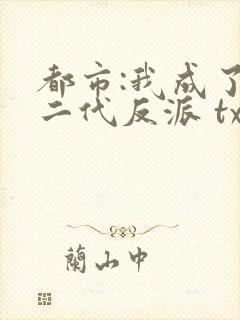 都市:我成了
二代反派 tx
蘭山中